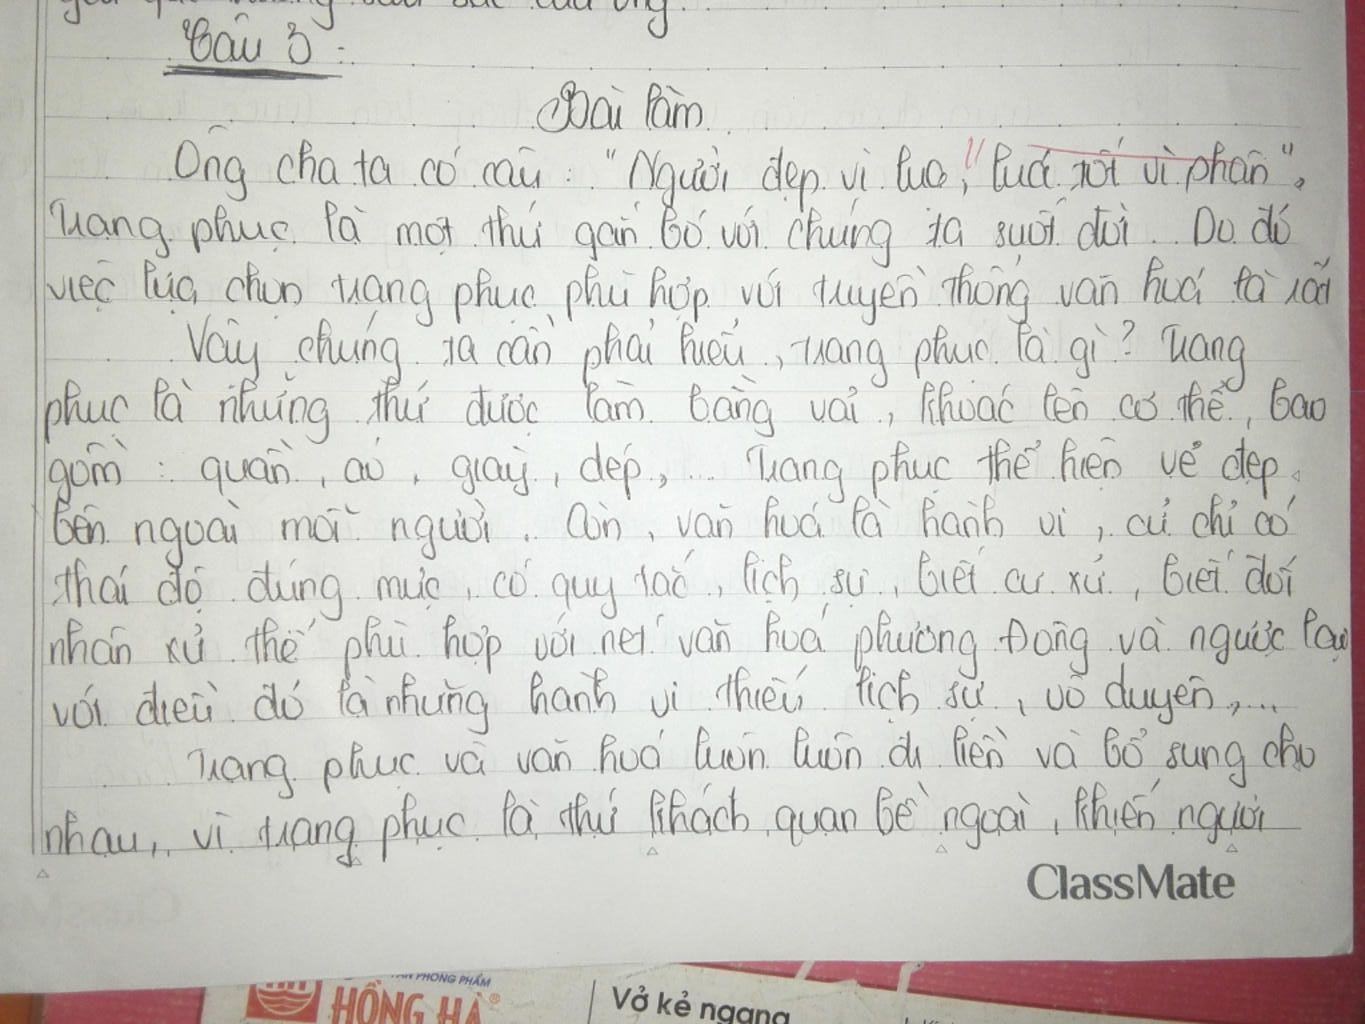 Câu 3:
Bài làm
Ông cha ta có câu: "Người đẹp vì lụa," lúa tốt vì phân",
Trang phục là một thứ gắn bó với chúng ta suốt đời. Do đó
việc lựa chọn trang phục phù hợp với truyền thống văn hoá là rất
Vậy chúng ta cần phải hiểu, trang phục là gì? Trang
phục là những thứ được làm bằng vải, khoác lên cơ thể, bao
gồm: quần, áo, giày, dép,... Trang phục thể hiện vẻ đẹp
bên ngoài mỗi người. Còn, văn hoá là hành vi, cử chỉ có
thái độ đúng mực, có quy tắc, lịch sự, biết cư xử, biết đối
nhân xử thế phù hợp với nét văn hoá phương Đông và ngược lại
với điều đó là những hành vi thiếu lịch sự, vô duyên,...
Trang phục và văn hoá luôn luôn đi liền và bổ sung cho
nhau, vì trang phục là thứ khách quan bề ngoài, khiến người
ClassMate
VĂN PHÒNG PHẨM
HỒNG HÀ
Vở kẻ ngang